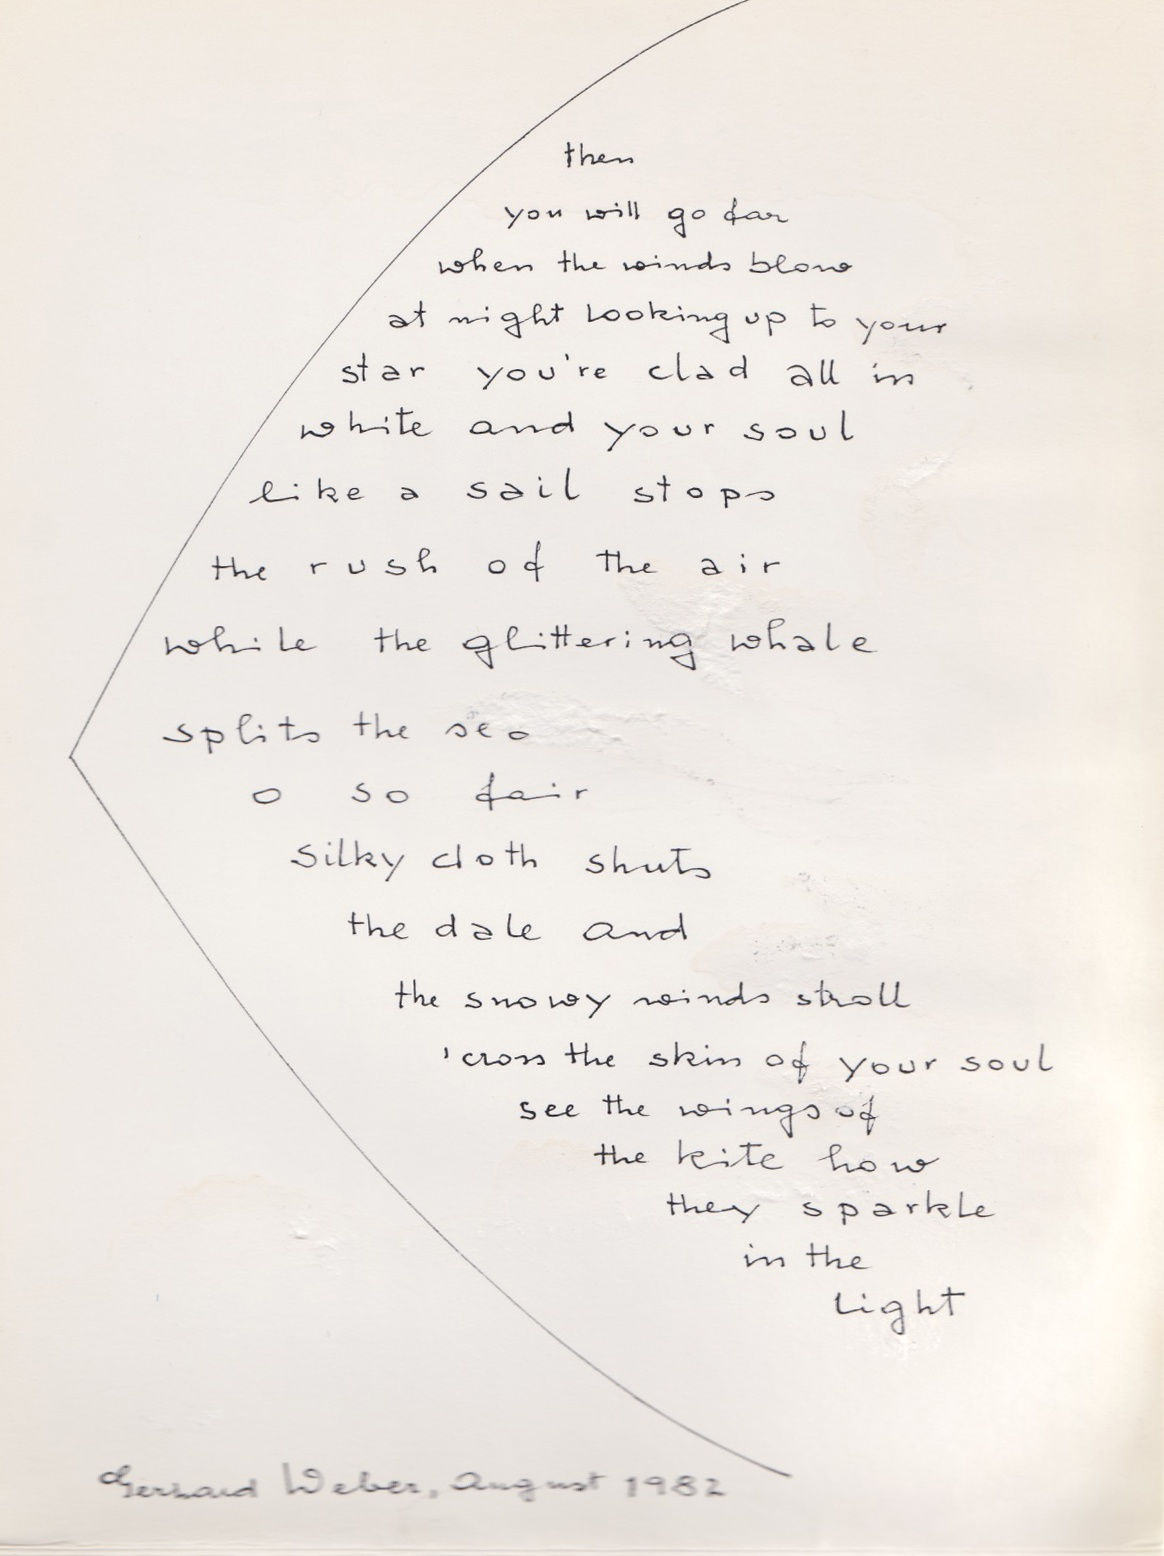 then
you will go far
when the winds blow
at night looking up to your
star you're clad all in
white and your soul
like a sail stops
the rush of the air
while the glittering whale
splits the sea
o so fair
silky cloth shuts
the dale and
the snowy winds stroll
'cross the skin of your soul
see the wings of
the kite how
they sparkle
in the
light
Gerhard Weber, August 1982